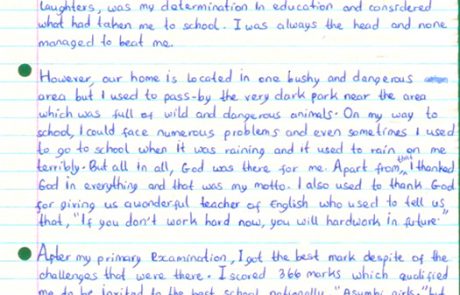 laughters, was my determination in education and considered
what had taken me to school. I was always the head and none
managed to beat me.
However, our home is located in one bushy and dangerous
area but I used to pass-by the very dark park near the area
which was full of wild and dangerous animals. On my way to
school, I could face numerous problems and even sometimes I used
to go to school when it was raining and it used to rain on me
terribly. But all in all, God was there for me. Apart from that, I thanked
God in everything and that was my motto. I also used to thank God
for giving us awonderful teacher of English who used to tell us
that, "If you don't work hard now, you will hardwork in future."
After my primary Examination, I got the best mark despite of the
challenges that were there. I scored 366 marks which qualified
me to be invited to the best school nationally "Asumbi girls," but